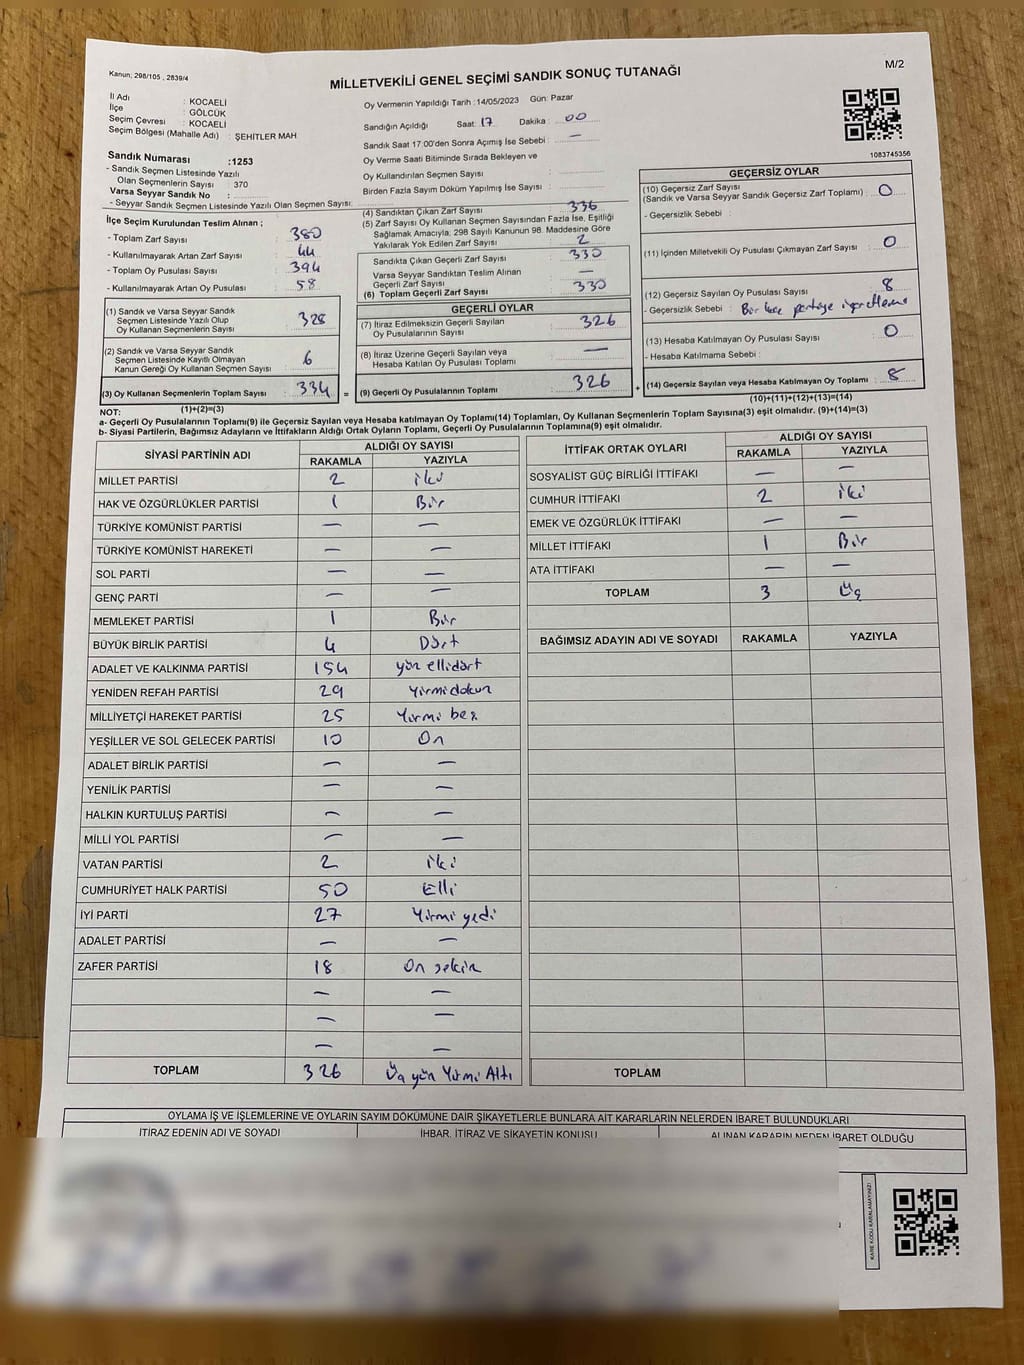 Kanun; 298/105 , 2839/4
MİLLETVEKİLİ GENEL SEÇİMİ SANDIK SONUÇ TUTANAĞI
M/2
İl Adı : KOCAELİ
İlçe : GÖLCÜK
Seçim Çevresi : KOCAELİ
Seçim Bölgesi (Mahalle Adı) : ŞEHİTLER MAH
Sandık Numarası :1253
- Sandık Seçmen Listesinde Yazılı
Olan Seçmenlerin Sayısı : 370
Varsa Seyyar Sandık No :
- Seyyar Sandık Seçmen Listesinde Yazılı Olan Seçmen Sayısı:
Oy Vermenin Yapıldığı Tarih :14/05/2023 Gün: Pazar
Sandığın Açıldığı Saat: 17 Dakika : 00
Sandık Saat 17.00'den Sonra Açımış İse Sebebi : —
Oy Verme Saati Bitiminde Sırada Bekleyen ve
Oy Kullandırılan Seçmen Sayısı :
Birden Fazla Sayım Döküm Yapılmış İse Sayısı :
1083745356
İlçe Seçim Kurulundan Teslim Alınan ;
- Toplam Zarf Sayısı : 380
- Kullanılmayarak Artan Zarf Sayısı : 44
- Toplam Oy Pusulası Sayısı : 394
- Kullanılmayarak Artan Oy Pusulası : 58
(1) Sandık ve Varsa Seyyar Sandık
Seçmen Listesinde Yazılı Olup
Oy Kullanan Seçmenlerin Sayısı : 328
(2) Sandık ve Varsa Seyyar Sandık
Seçmen Listesinde Kayıtlı Olmayan
Kanun Gereği Oy Kullanan Seçmen Sayısı : 6
(3) Oy Kullanan Seçmenlerin Toplam Sayısı : 334
(1)+(2)=(3)
(4) Sandıktan Çıkan Zarf Sayısı : 336
(5) Zarf Sayısı Oy Kullanan Seçmen Sayısından Fazla İse, Eşitliği
Sağlamak Amacıyla; 298 Sayılı Kanunun 98. Maddesine Göre
Yakılarak Yok Edilen Zarf Sayısı : 2
Sandıkta Çıkan Geçerli Zarf Sayısı : 330
Varsa Seyyar Sandıktan Teslim Alınan
Geçerli Zarf Sayısı : —
(6) Toplam Geçerli Zarf Sayısı : 330
GEÇERLİ OYLAR
(7) İtiraz Edilmeksizin Geçerli Sayılan
Oy Pusulalarının Sayısı : 326
(8) İtiraz Üzerine Geçerli Sayılan veya
Hesaba Katılan Oy Pusulası Toplamı : —
= (9) Geçerli Oy Pusulalarının Toplamı : 326
GEÇERSİZ OYLAR
(10) Geçersiz Zarf Sayısı
(Sandık ve Varsa Seyyar Sandık Geçersiz Zarf Toplamı) : 0
- Geçersizlik Sebebi :
(11) İçinden Milletvekili Oy Pusulası Çıkmayan Zarf Sayısı : 0
(12) Geçersiz Sayılan Oy Pusulası Sayısı : 8
- Geçersizlik Sebebi : Bir partiye işaretleme
(13) Hesaba Katılmayan Oy Pusulası Sayısı : 0
- Hesaba Katılmama Sebebi :
+ (14) Geçersiz Sayılan veya Hesaba Katılmayan Oy Toplamı : 8
(10)+(11)+(12)+(13)=(14)
NOT:
a- Geçerli Oy Pusulalarının Toplamı(9) ile Geçersiz Sayılan veya Hesaba katılmayan Oy Toplamı(14) Toplamları, Oy Kullanan Seçmenlerin Toplam Sayısına(3) eşit olmalıdır. (9)+(14)=(3)
b- Siyasi Partilerin, Bağımsız Adayların ve İttifakların Aldığı Ortak Oyların Toplamı, Geçerli Oy Pusulalarının Toplamına(9) eşit olmalıdır.
SİYASİ PARTİNİN ADI ALDIĞI OY SAYISI
RAKAMLA YAZIYLA
MİLLET PARTİSİ 2 iki
HAK VE ÖZGÜRLÜKLER PARTİSİ 1 Bir
TÜRKİYE KOMÜNİST PARTİSİ — —
TÜRKİYE KOMÜNİST HAREKETİ — —
SOL PARTİ — —
GENÇ PARTİ — —
MEMLEKET PARTİSİ 1 Bir
BÜYÜK BİRLİK PARTİSİ 4 Dört
ADALET VE KALKINMA PARTİSİ 154 yüz ellidört
YENİDEN REFAH PARTİSİ 29 Yirmidokuz
MİLLİYETÇİ HAREKET PARTİSİ 25 Yirmi beş
YEŞİLLER VE SOL GELECEK PARTİSİ 10 On
ADALET BİRLİK PARTİSİ — —
YENİLİK PARTİSİ — —
HALKIN KURTULUŞ PARTİSİ — —
MİLLİ YOL PARTİSİ — —
VATAN PARTİSİ 2 iki
CUMHURİYET HALK PARTİSİ 50 Elli
İYİ PARTİ 27 Yirmi yedi
ADALET PARTİSİ — —
ZAFER PARTİSİ 18 On sekiz
— —
— —
— —
TOPLAM 326 Üç yüz Yirmi Altı
İTTİFAK ORTAK OYLARI ALDIĞI OY SAYISI
RAKAMLA YAZIYLA
SOSYALİST GÜÇ BİRLİĞİ İTTİFAKI — —
CUMHUR İTTİFAKI 2 iki
EMEK VE ÖZGÜRLÜK İTTİFAKI — —
MİLLET İTTİFAKI 1 Bir
ATA İTTİFAKI — —
TOPLAM 3 Üç
BAĞIMSIZ ADAYIN ADI VE SOYADI RAKAMLA YAZIYLA
TOPLAM
OYLAMA İŞ VE İŞLEMLERİNE VE OYLARIN SAYIM DÖKÜMÜNE DAİR ŞİKAYETLERLE BUNLARA AİT KARARLARIN NELERDEN İBARET BULUNDUKLARI
İTİRAZ EDENİN ADI VE SOYADI İHBAR, İTİRAZ VE ŞİKAYETİN KONUSU ALINAN KARARIN NEDEN İBARET OLDUĞU
KARE KODU KARALAMAYINIZ!